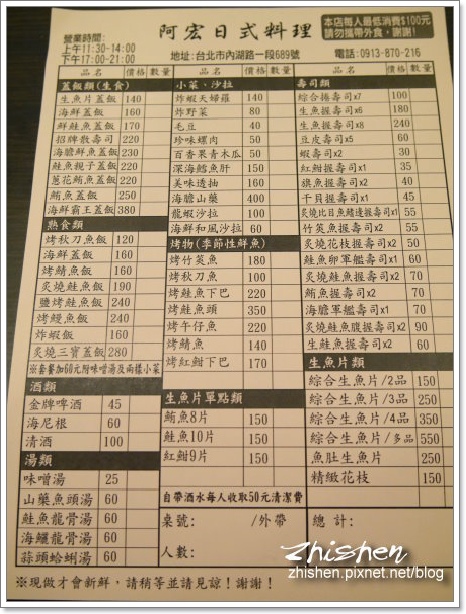 營業時間:
上午11:30-14:00
下午17:00-21:00
阿宏日式料理
本店每人最低消費$100元
請勿攜帶外食，謝謝!
地址:台北市內湖路一段689號
電話:0913-870-216
品名 價格 數量
蓋飯類(生食)
生魚片蓋飯 140
海鮮蓋飯 160
鮮鮭魚蓋飯 170
招牌散壽司 220
海膽鮮魚蓋飯 230
鮭魚親子蓋飯 220
蔥花鮪魚蓋飯 220
鮪魚蓋飯 250
海鮮霸王蓋飯 380
熟食類
烤秋刀魚飯 120
海鮮蓋飯 160
烤鯖魚飯 160
炙燒鮭魚飯 190
鹽烤鮭魚飯 240
烤鰻魚飯 240
炸蝦飯 160
炙燒三寶蓋飯 280
※套餐加60元附味噌湯及兩樣小菜
酒類
金牌啤酒 45
海尼根 60
清酒 100
湯類
味噌湯 25
山藥魚頭湯 60
鮭魚龍骨湯 60
海鱺龍骨湯 60
蒜頭蛤蜊湯 60
品名 價格 數量
小菜、沙拉
炸蝦天婦羅 140
炸野菜 80
毛豆 40
珍味螺肉 50
百香果青木瓜 50
深海鱈魚肝 150
美味透抽 160
海膽山藥 400
龍蝦沙拉 100
海鮮和風沙拉 60
烤物(季節性鮮魚)
烤竹筴魚 180
烤秋刀魚 100
烤鮭魚下巴 220
烤鮭魚頭 350
烤午仔魚 220
烤鯖魚 140
烤紅魽下巴 170
生魚片單點類
鮪魚8片 150
鮭魚10片 150
紅魽9片 150
自帶酒水每人收取50元清潔費
桌號: /外帶
人數:
品名 價格 數量
壽司類
綜合捲壽司x7 100
生魚握壽司x6 180
生魚握壽司x8 240
豆皮壽司x5 60
蝦壽司x2 30
紅魽握壽司x1 35
旗魚握壽司x2 40
干貝握壽司x1 45
炙燒比目魚鰭邊握壽司x1 55
竹筴魚握壽司x2 55
炙燒花枝握壽司x2 50
鮭魚卵軍艦壽司x1 60
炙燒鮭魚握壽司x2 70
鮪魚握壽司x2 70
海膽軍艦壽司x1 70
炙燒鮭魚腹握壽司x2 90
生鮭魚握壽司x2 60
生魚片類
綜合生魚片/2品 150
綜合生魚片/3品 250
綜合生魚片/4品 350
綜合生魚片/多品 550
魚肚生魚片 250
精緻花枝 150
總計:
※現做才會新鮮，請稍等並請見諒!謝謝!
Zhishen
zhishen.pixnet.net/blog